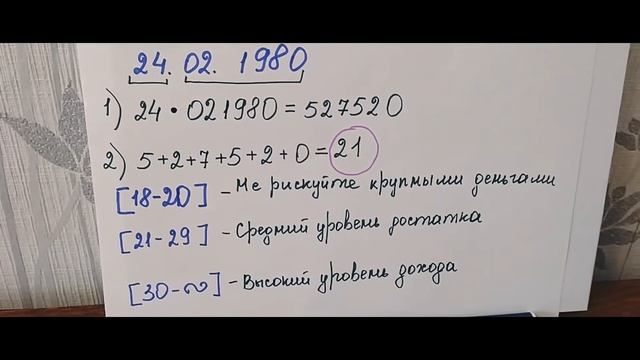 24. 02. 1980
1) 24 • 021980 = 527520
2) 5+2+7+5+2+0=21
[18-20] - Не рискуйте крупными деньгами
[21-29] - Средний уровень достатка
[30-∞] - Высокий уровень дохода